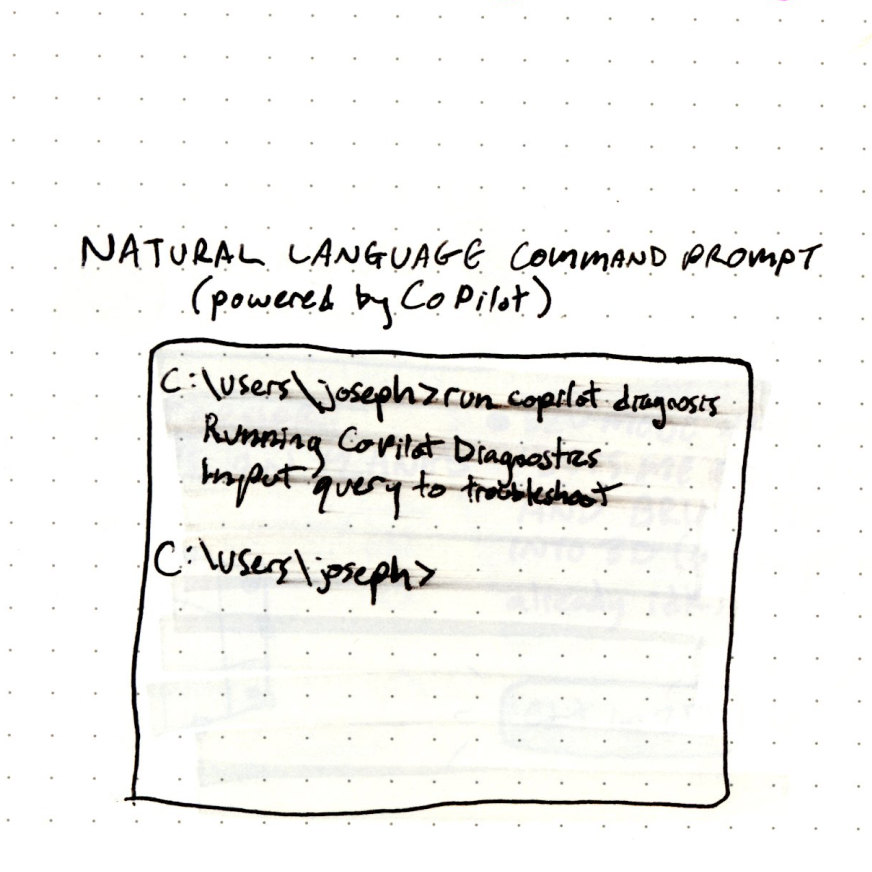 NATURAL LANGUAGE COMMAND PROMPT
(powered by CoPilot)
C:\users\joseph>run copilot diagnosis
Running CoPilot Diagnostics
Input query to troubleshoot
C:\users\joseph>